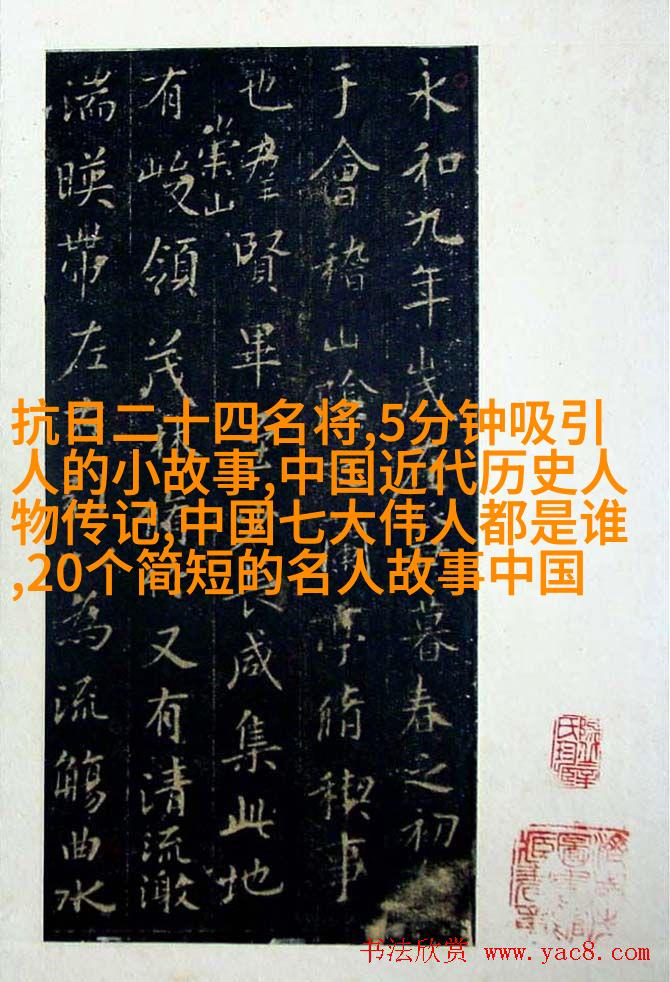 永和九年歲暮春之初
于會稽山陰亭脩稧事
也羣賢畢咸集此地
有崇山峻領茂林又有清流激
湍暎帶左為流觴曲水
抗日二十四名将,5分钟吸引
人的小故事,中国近代历史人
物传记,中国七大伟人都是谁
,20个简短的名人故事中国
书法欣赏 www.yac8.com